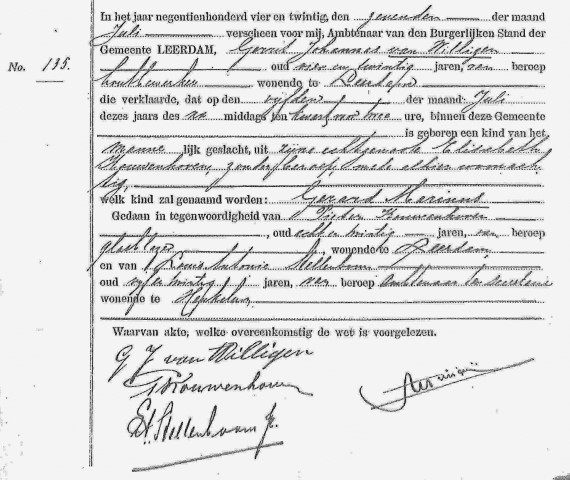 In het jaar negentienhonderd vier en twintig, den zevenden der maand
Juli verscheen voor mij, Ambtenaar van den Burgerlijken Stand der
Gemeente LEERDAM, Gerrit Johannes van Willigen
No. 135. oud vier en twintig jaren, van beroep
wonende te Leerdam
die verklaarde, dat op den vijfden der maand Juli
dezes jaars des na middags ten kwart voor drie ure, binnen deze Gemeente
is geboren een kind van het
mannelijk geslacht, uit zijne echtgenoote Elisabeth
Kouwenhoven, zonder beroep, mede alhier woonach-
tig,
welk kind zal genaamd worden: Gerard Marinus
Gedaan in tegenwoordigheid van Pieter Kouwenhoven
, oud acht en twintig jaren, van beroep
glasblazer, wonende te Leerdam
en van Louis Antonie Stellenboom
oud vijf en twintig jaren, van beroep Ambtenaar ter Secretarie
wonende te Heukelum
Waarvan akte, welke overeenkomstig de wet is voorgelezen.
G J van Willigen
Kouwenhoven
Stellenboom Jr.